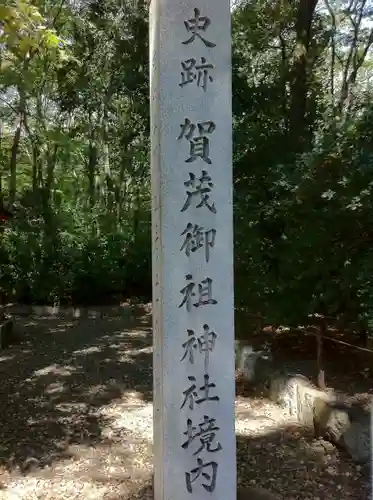 史跡賀茂御祖神社境内